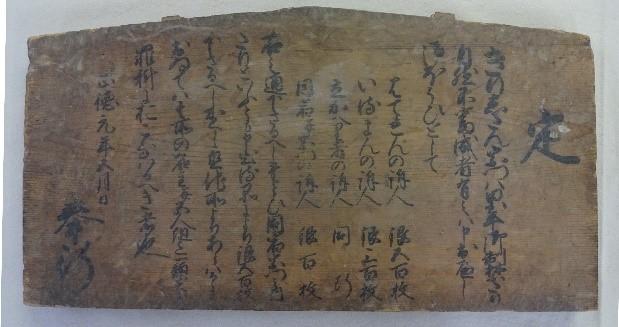 定
きりしたん宗門ハ累年御制禁たり
自然不審成者有之ハ申出へし
御ほうひとして
はてれんの訴人 銀五百枚
いるまんの訴人 銀三百枚
立かへり者の訴人 同断
同宿并宗門の訴人 銀百枚
右之通下さるへしたとひ同宿宗門之内
たりといふとも訴人に出る品により銀五百枚
下さるへし隠し置他所よりあらハるゝに
おゐてハ其所の名主并五人組迄一類共に
罪科行ハるへき者也
正徳元年五月日
奉行